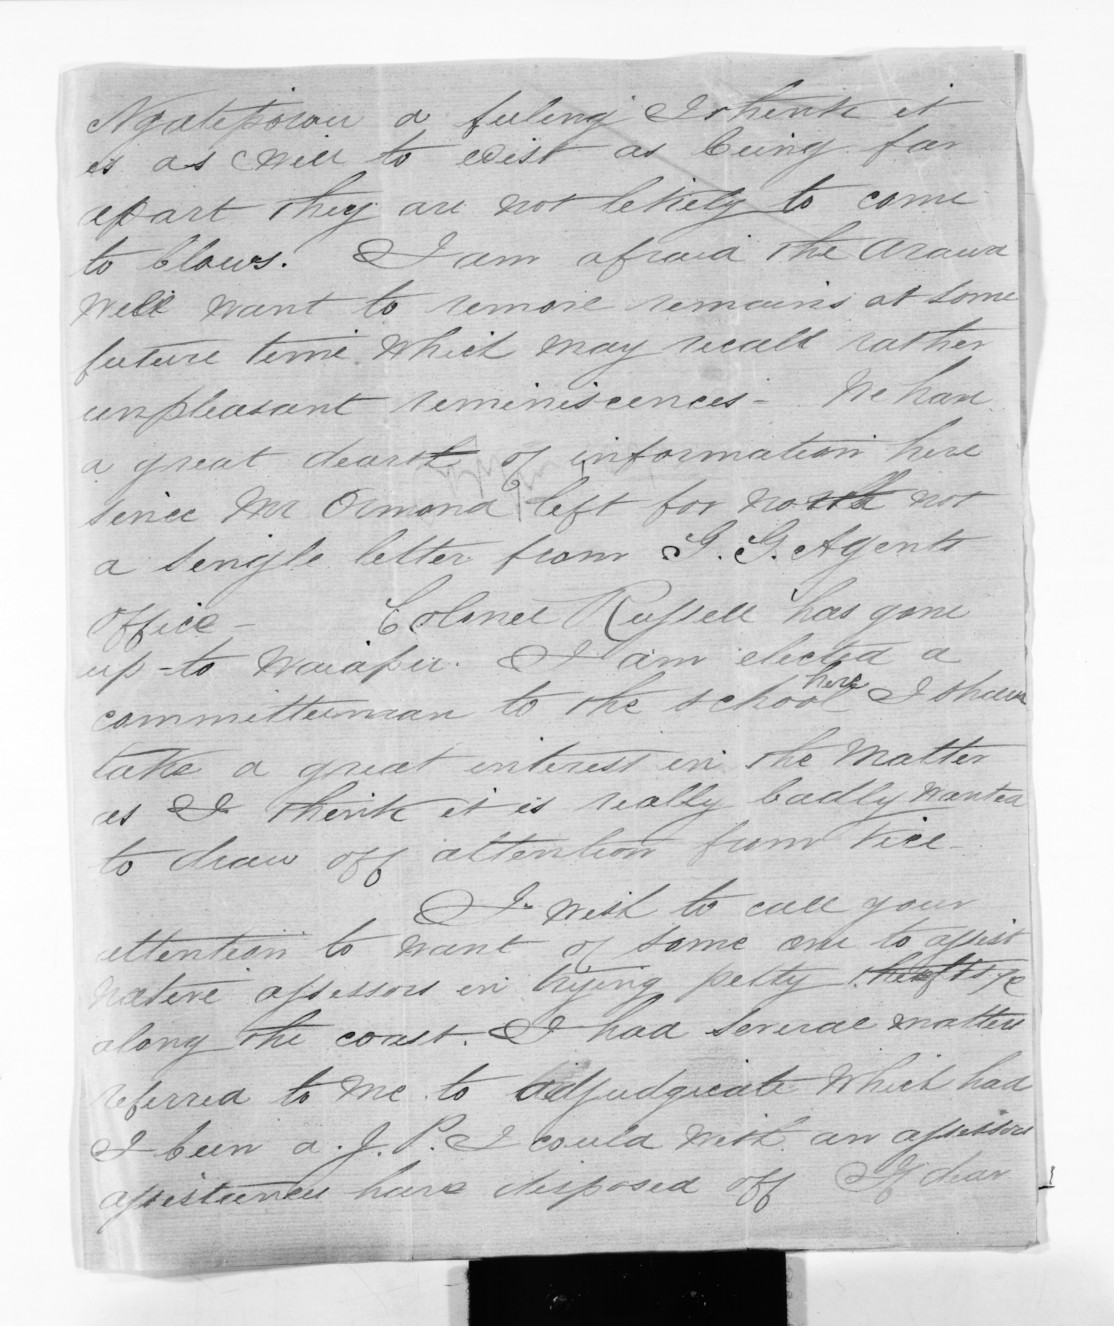 Ngatiporou a feeling I think it
is as well to exist as being far
apart they are not likely to come
to blows. I am afraid the Arawa
will want to remove remains at some
future time which may recall rather
unpleasant reminiscences - We have
a great dearth of information here
since Mr Ormond left for north not
a single letter from G. G. Agents
office - Colonel Russell has gone
up to Waiapu. I am elected a
committeeman to the school here I shall
take a great interest in the matter
as I think it is really badly wanted
to draw off attention from vice -
I wish to call your
attention to want of some one to assist
native assessors in trying petty thefts &c
along the coast. I had several matters
referred to me to adjudgicate which had
I been a J. P. I could with an assessors
assistance have disposed off If dear